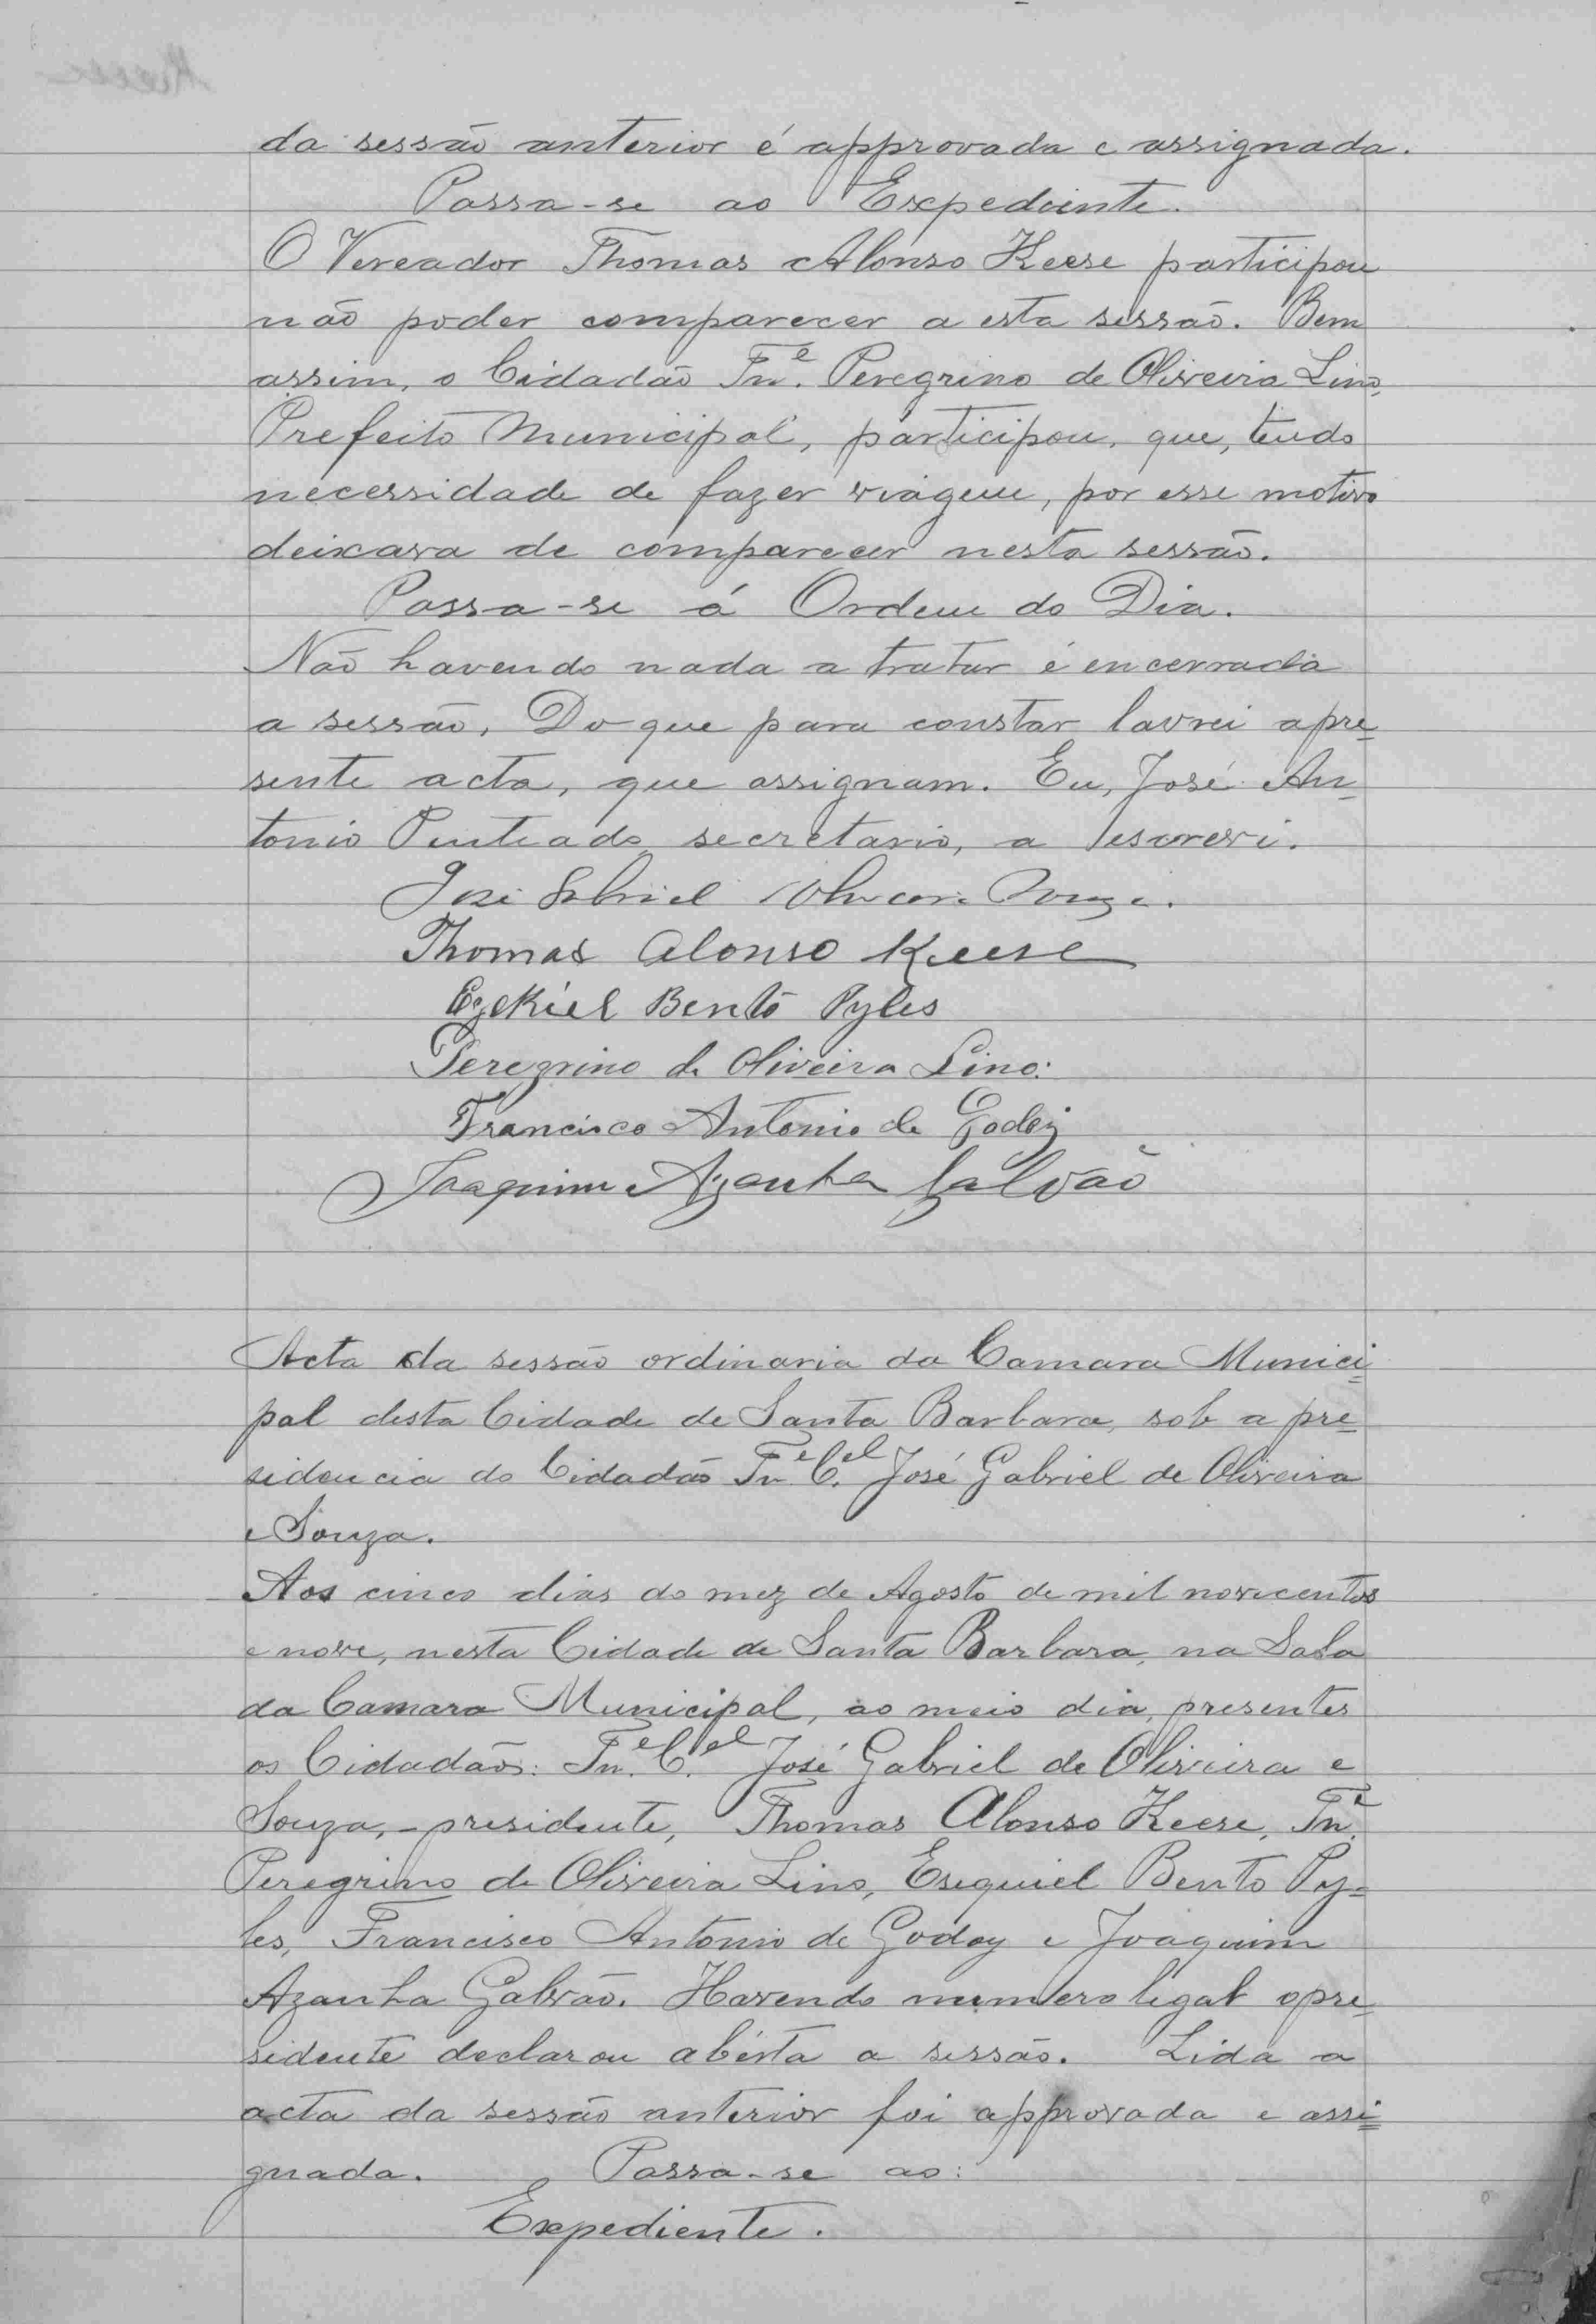 da sessão anterior é approvada e assignada.
Passa-se ao Expediente.
O Vereador Thomas Alonso Keese participou
não poder comparecer a esta sessão. Bem
assim, o Cidadão Tn.e Peregrino de Oliveira Lino,
Prefeito Municipal, participou, que, tendo
necessidade de fazer viagem, por esse motivo
deixava de comparecer nesta sessão.
Passa-se á Ordem do Dia.
Não havendo nada a tratar é encerrada
a sessão, Do que para constar lavrei apre=
sente acta, que assignam. Eu, José An=
tonio Penteado, secretario, a escrevi.
José Gabriel Oliveira Souza.
Thomas Alonso Keese
Ezekiel Bento Pyles
Peregrino de Oliveira Lino.
Francisco Antonio de Godoy
Joaquim Azanha Galvão
Acta da sessão ordinaria da Camara Munici=
pal desta Cidade de Santa Barbara, sob a pre=
sidencia do Cidadão Tn.e C.el José Gabriel de Oliveira
e Souza.
Aos cinco dias do mez de Agosto de mil novecentos
e nove, nesta Cidade de Santa Barbara, na Sala
da Camara Municipal, ao meio dia, presentes
os Cidadãos: Tn.e C.el José Gabriel de Oliveira e
Souza,-presidente, Thomas Alonso Keese, Tn.e
Peregrino de Oliveira Lino, Esequiel Bento Py=
les, Francisco Antonio de Godoy e Joaquim
Azanha Galvão. Havendo numero legal opre=
sidente declarou abérta a sessão. Lida a
acta da sessão anterior foi approvada e assi=
gnada. Passa-se ao:
Expediente.